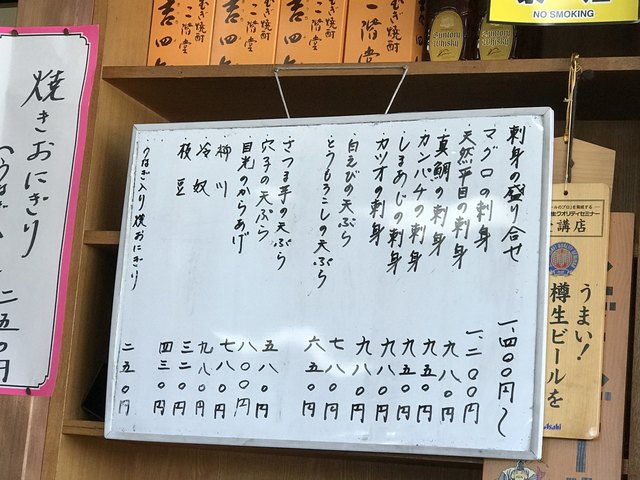 刺身の盛り合せ 一、四〇〇円〜
マグロの刺身 一、二〇〇円
天然平目の刺身 九八〇円
真鯛の刺身 九五〇円
カンパチの刺身 九五〇円
しまあじの刺身 九八〇円
カツオの刺身 九八〇円
白えびの天ぷら 七八〇円
とうもろこしの天ぷら 六五〇円
さつま芋の天ぷら 五八〇円
穴子の天ぷら 八〇〇円
目光のからあげ 七八〇円
柳川 九八〇円
冷奴 三二〇円
枝豆 四三〇円
うなぎ入り焼おにぎり 二五〇円
焼きおにぎり
二五〇円
NO SMOKING
むぎ焼酎
二階堂
吉四
むぎ焼酎
二階堂
吉四
むぎ焼酎
二階堂
SUNTORY
WHISKY
SUNTORY
WHISKY
生クオリティセミナー
講店
うまい!
樽生ビールを
Asahi